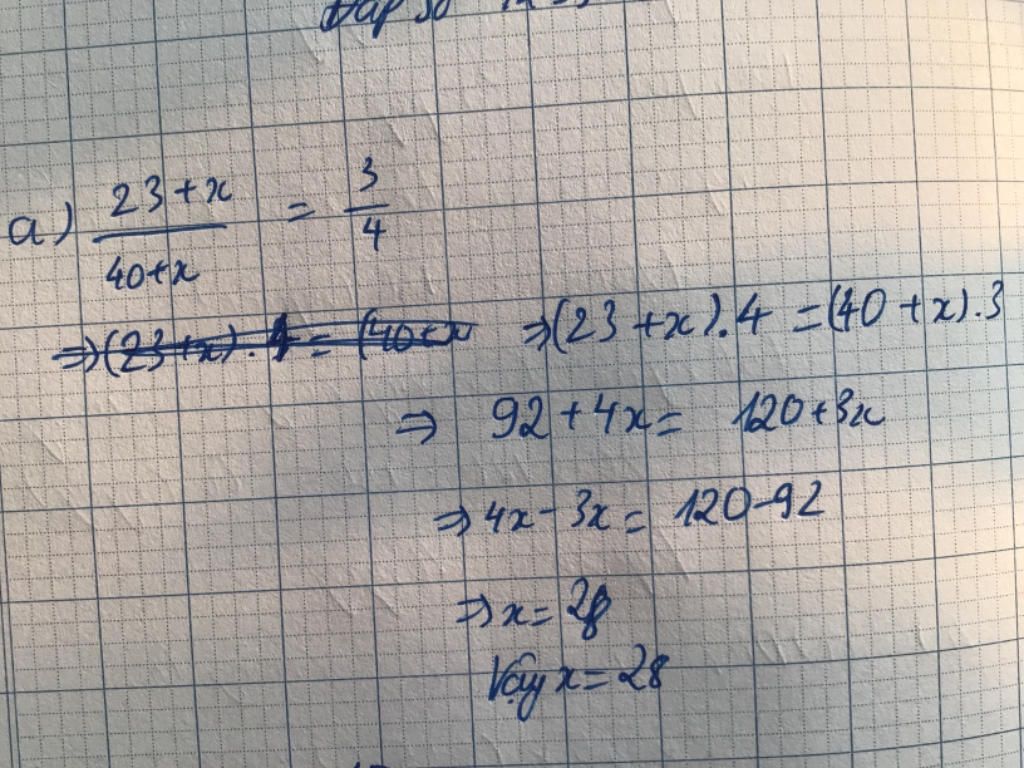 Đáp số
a) 23+x / 40+x = 3 / 4
⇒(23+x).4 = (40+x ⇒(23+x).4 =(40+x).3
⇒ 92+4x= 120+3x
⇒4x-3x= 120-92
⇒x=28
Vậy x=28